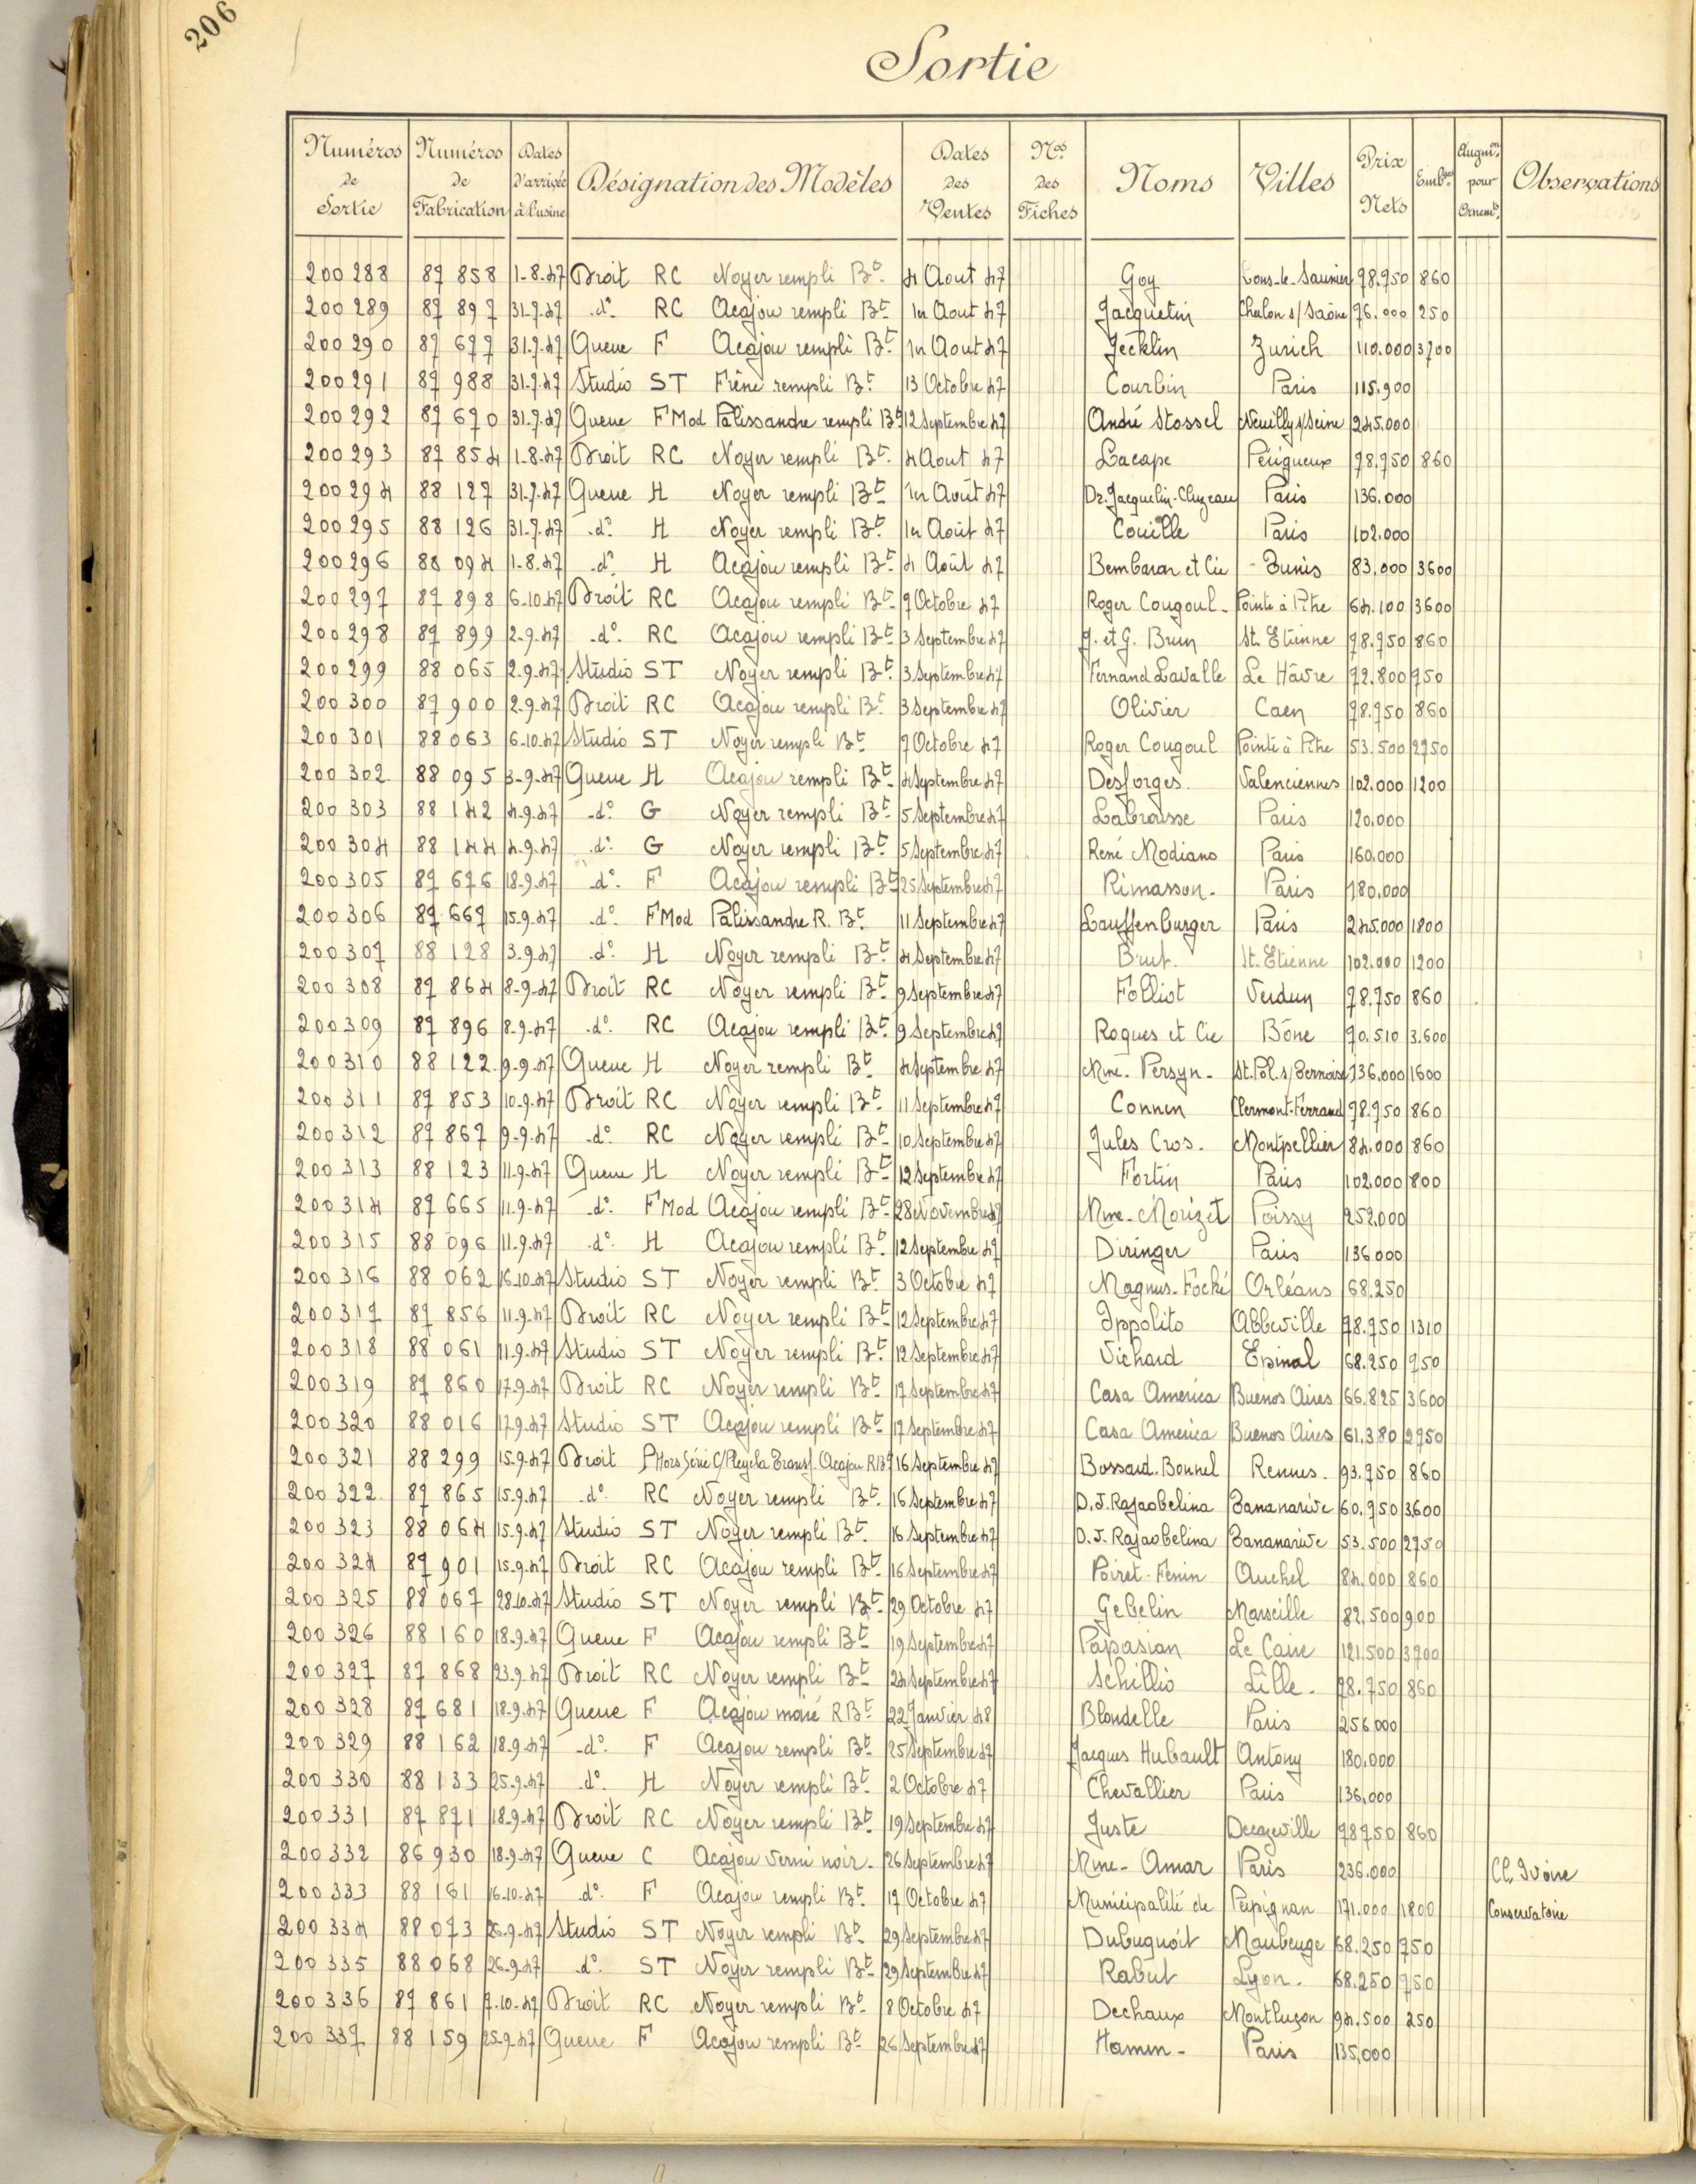 206
Sortie
Numéros de Sortie Numéros de Fabrication Dates d'arrivée à l'usine Désignation des Modèles Dates des Ventes Nos des Fiches Noms Villes Prix Nets Emb.ges Augm.on pour Ornem.ts Observations
200 288 87 858 1-8-47 Droit RC Noyer rempli Bt. 4 Aout 47 Goy Lons-le-Saunier 78.750 860
200 289 87 897 31-7-47 -do- RC Acajou rempli Bt. 1er Aout 47 Jacquetin Chalon s/Saône 76.000 250
200 290 87 677 31-7-47 Queue F Acajou rempli Bt. 1er Aout 47 Jecklin Zurich 110.000 3700
200 291 87 988 31-7-47 Studio ST Frêne rempli Bt. 13 Octobre 47 Courbin Paris 115.900
200 292 87 670 31-7-47 Queue F Mod Palissandre rempli Bt. 12 Septembre 47 André Stossel Neuilly s/Seine 245.000
200 293 87 854 1-8-47 Droit RC Noyer rempli Bt. 4 Aout 47 Lacape Périgueux 78.750 860
200 294 88 127 31-7-47 Queue H Noyer rempli Bt. 1er Août 47 Dr. Jacquelin-Cluzeau Paris 136.000
200 295 88 126 31-7-47 -do- H Noyer rempli Bt. 1er Août 47 Couille Paris 102.000
200 296 88 094 1-8-47 -do- H Acajou rempli Bt. 4 Août 47 Bembaron et Cie - Tunis 83.000 3600
200 297 87 898 6-10-47 Droit RC Acajou rempli Bt. 7 Octobre 47 Roger Cougoul - Pointe à Pitre 64.100 3600
200 298 87 899 2-9-47 -do- RC Acajou rempli Bt. 3 Septembre 47 J. et G. Brun St. Etienne 78.750 860
200 299 88 065 2-9-47 Studio ST Noyer rempli Bt. 3 Septembre 47 Fernand Lavalle Le Hâvre 72.800 750
200 300 87 900 2-9-47 Droit RC Acajou rempli Bt. 3 Septembre 47 Olivier Caen 78.750 860
200 301 88 063 6-10-47 Studio ST Noyer rempli Bt. 7 Octobre 47 Roger Cougoul Pointe à Pitre 53.500 2750
200 302 88 095 3-9-47 Queue H Acajou rempli Bt. 4 Septembre 47 Desforges. Valenciennes 102.000 1200
200 303 88 142 4-9-47 -do- G Noyer rempli Bt. 5 Septembre 47 Labrousse Paris 120.000
200 304 88 144 4-9-47 -do- G Noyer rempli Bt. 5 Septembre 47 René Modiano Paris 160.000
200 305 87 676 18-9-47 -do- F Acajou rempli Bt. 25 Septembre 47 Rimasson - Paris 180.000
200 306 87 667 15-9-47 -do- F Mod Palissandre R. Bt. 11 Septembre 47 Lauffenburger Paris 245.000 1800
200 307 88 128 3-9-47 -do- H Noyer rempli Bt. 4 Septembre 47 Brut. St. Etienne 102.000 1200
200 308 87 864 8-9-47 Droit RC Noyer rempli Bt. 9 Septembre 47 Folliot Verdun 78.750 860
200 309 87 896 8-9-47 -do- RC Acajou rempli Bt. 9 Septembre 47 Roques et Cie Bône 70.510 3.600
200 310 88 122 9-9-47 Queue H Noyer rempli Bt. 4 Septembre 47 Mme. Persyn - St. Pol. s/Ternoise 136.000 1600
200 311 87 853 10-9-47 Droit RC Noyer rempli Bt. 11 Septembre 47 Connen Clermont-Ferrand 78.750 860
200 312 87 867 9-9-47 -do- RC Noyer rempli Bt. 10 Septembre 47 Jules Cros - Montpellier 84.000 860
200 313 88 123 11-9-47 Queue H Noyer rempli Bt. 12 Septembre 47 Fortin Paris 102.000 800
200 314 87 665 11-9-47 -do- F Mod Acajou rempli Bt. 28 Novembre 47 Mme - Morizet Poissy 252.000
200 315 88 096 11-9-47 -do- H Acajou rempli Bt. 12 Septembre 47 Diringer Paris 136.000
200 316 88 062 16-10-47 Studio ST Noyer rempli Bt. 3 Octobre 47 Magnus-Focké Orléans 68.250
200 317 87 856 11-9-47 Droit RC Noyer rempli Bt. 12 Septembre 47 Ippolito Abbeville 78.750 1310
200 318 88 061 11-9-47 Studio ST Noyer rempli Bt. 12 Septembre 47 Vichard Epinal 68.250 750
200 319 87 860 17-9-47 Droit RC Noyer rempli Bt. 17 Septembre 47 Casa America Buenos Aires 66.825 3600
200 320 88 016 17-9-47 Studio ST Acajou rempli Bt. 17 Septembre 47 Casa America Buenos Aires 61.380 2750
200 321 88 299 15-9-47 Droit P Hors Série C/Pleyela Transf. Acajou R Bt 16 Septembre 47 Bossard-Bonnel Rennes - 93.750 860
200 322 87 865 15-9-47 -do- RC Noyer rempli Bt. 16 Septembre 47 D.J. Rajaobelina Tananarive 60.750 3600
200 323 88 064 15-9-47 Studio ST Noyer rempli Bt. 16 Septembre 47 D.J. Rajaobelina Tananarive 53.500 2750
200 324 87 901 15-9-47 Droit RC Acajou rempli Bt. 16 Septembre 47 Poiret-Fenin Auchel 84.000 860
200 325 88 067 28-10-47 Studio ST Noyer rempli Bt. 29 Octobre 47 Gebelin Marseille 82.500 900
200 326 88 160 18-9-47 Queue F Acajou rempli Bt. 19 Septembre 47 Papasian Le Caire 121.500 3700
200 327 87 868 23-9-47 Droit RC Noyer rempli Bt. 24 Septembre 47 Schillio Lille - 78.750 860
200 328 87 681 18-9-47 Queue F Acajou moiré R Bt. 22 Janvier 48 Blondelle Paris 256.000
200 329 88 162 18-9-47 -do- F Acajou rempli Bt. 25 Septembre 47 Jacques Hubault Antony 180.000
200 330 88 133 25-9-47 -do- H Noyer rempli Bt. 2 Octobre 47 Chevallier Paris 136.000
200 331 87 871 18-9-47 Droit RC Noyer rempli Bt. 19 Septembre 47 Juste Decazeville 78750 860
200 332 86 930 18-9-47 Queue C Acajou verni noir - 26 Septembre 47 Mme - Amar Paris 236.000 Cl. Ivoire
200 333 88 161 16-10-47 -do- F Acajou rempli Bt. 17 Octobre 47 Municipalité de Perpignan 171.000 1800 Conservatoire
200 334 88 073 26-9-47 Studio ST Noyer rempli Bt. 29 Septembre 47 Dubuquoit Maubeuge 68.250 750
200 335 88 068 26-9-47 -do- ST Noyer rempli Bt. 29 Septembre 47 Rabut Lyon - 68.250 750
200 336 87 861 7-10-47 Droit RC Noyer rempli Bt. 8 Octobre 47 Dechaux Montluçon 94.500 250
200 337 88 159 25-9-47 Queue F Acajou rempli Bt. 26 Septembre 47 Hamm - Paris 135.000